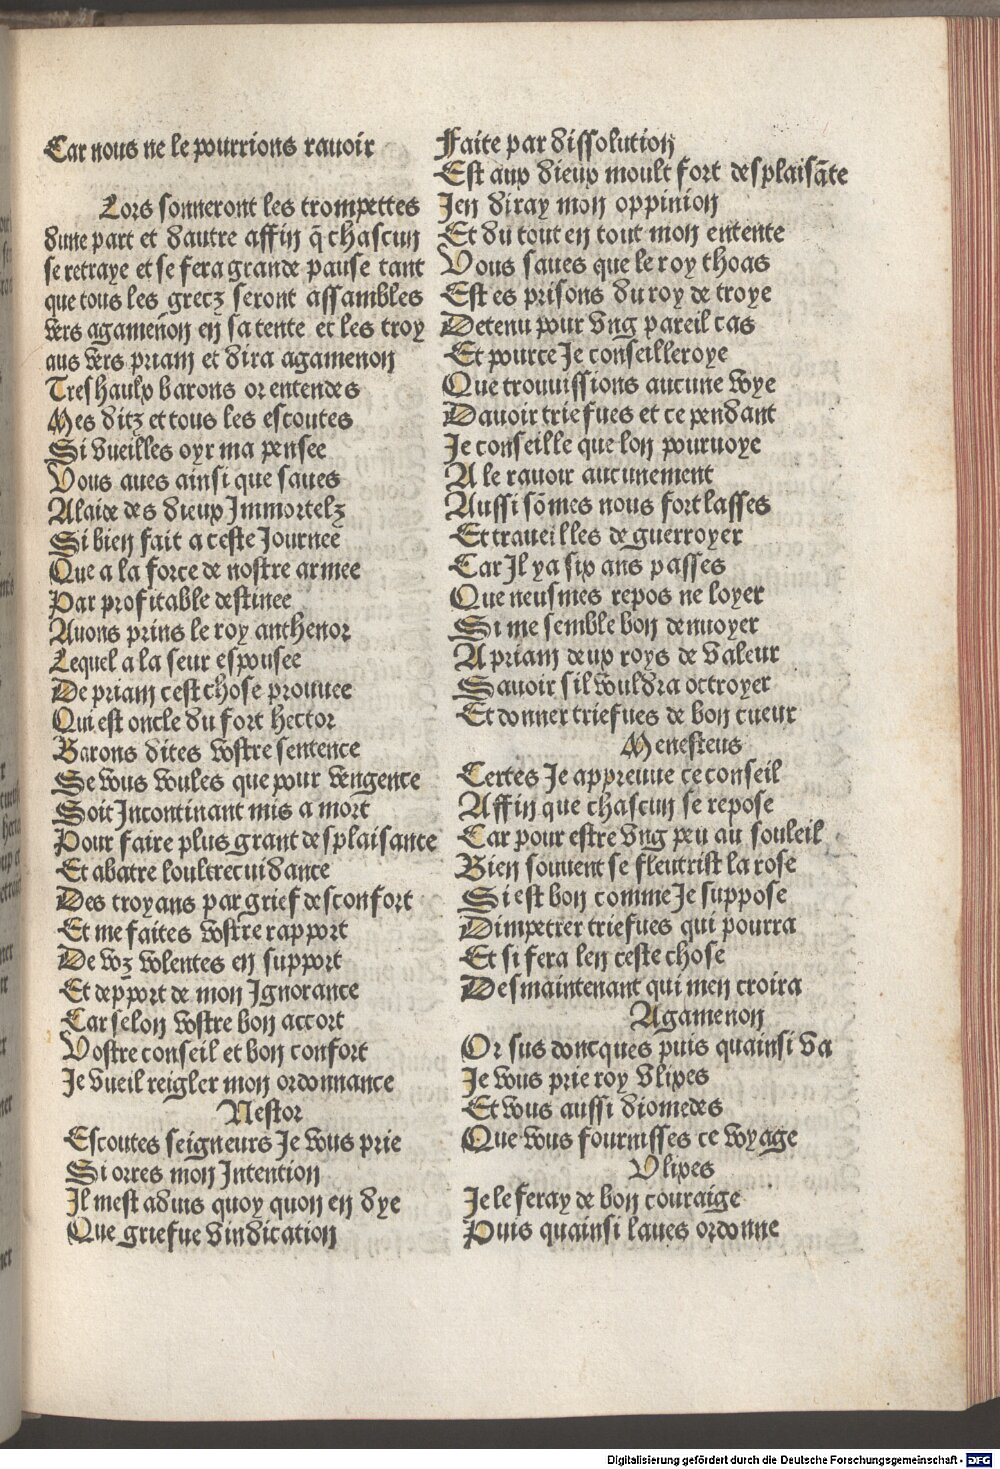 Car nous ne le pourrions rauoir
Lors sonneront les trompettes
dune part et dautre affin q̃ chascun
se retraye et se fera grande pause tant
que tous les grecz seront assambles
vers agameñon en sa tente et les troy
ans vers priam et dira agamenon
Treshaulx barons or entendes
Mes ditz et tous les escoutes
Si vueilles oyr ma pensee
Vous aues ainsi que saues
Alaide des dieux Immortelz
Si bien fait a ceste Journee
Que a la force de nostre armee
Par profitable destinee
Auons prins le roy anthenor
Lequel a la seur espousee
De priam cest chose prouuee
Qui est oncle du fort hector
Barons dites vostre sentence
Se vous voules que pour vengence
Soit Incontinant mis a mort
Pour faire plus grant desplaisance
Et abatre loultrecuidance
Des troyans par grief desconfort
Et me faites vostre rapport
De voz volentes en support
Et depport de mon Ignorance
Car selon vostre bon accort
Vostre conseil et bon confort
Je vueil reigler mon ordonnance
Nestor
Escoutes seigneurs Je vous prie
Si orres mon Intention
Il mest aduis quoy quon en dye
Que griefue vindication
Faite par dissolution
Est aux dieux moult fort desplaisãte
Jen diray mon oppinion
Et du tout en tout mon entente
Vous saues que le roy thoas
Est es prisons du roy de troye
Detenu pour vng pareil cas
Et pource Je conseilleroye
Que trouuissions aucune voye
Dauoir triefues et ce pendant
Je conseille que lon pouruoye
A le rauoir aucunement
Aussi sõmes nous fort lasses
Et traueilles de guerroyer
Car Il ya six ans passes
Que neusmes repos ne loyer
Si me semble bon denuoyer
A priam deux roys de valeur
Sauoir sil vouldra octroyer
Et donner triefues de bon cueur
Menesteus
Certes Je appreuue ce conseil
Affin que chascun se repose
Car pour estre vng peu au souleil
Bien souuent se fleutrist la rose
Si est bon comme Je suppose
Dimpetrer triefues qui pourra
Et si fera len ceste chose
Des maintenant qui men croira
Agamenon
Or sus doncques puis quainsi va
Je vous prie roy vlixes
Et vous aussi diomedes
Que vous fournisses ce voyage
Vlixes
Je le feray de bon couraige
Puis quainsi laues ordonne
Digitalisierung gefördert durch die Deutsche Forschungsgemeinschaft - DFG